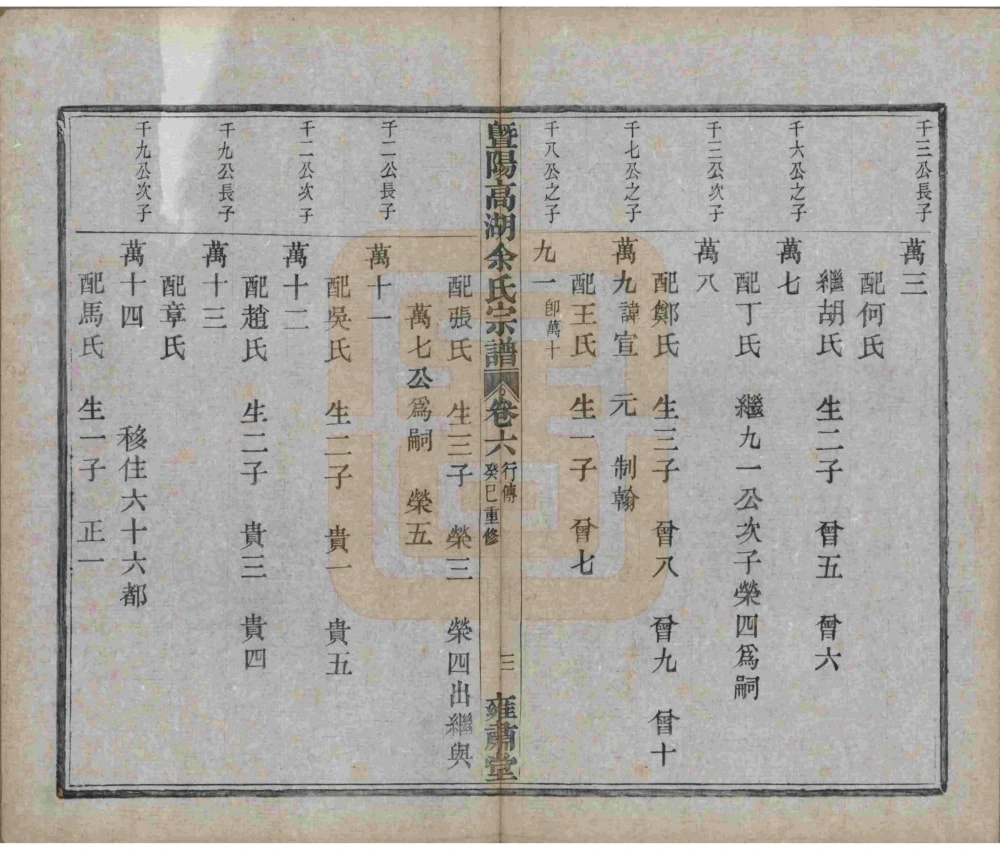 千三公長子
萬三
配何氏
繼胡氏 生二子 曾五 曾六
千六公之子
萬七
配丁氏 繼九一公次子榮四為嗣
千三公次子
萬八
配鄭氏 生三子 曾八 曾九 曾十
千七公之子
萬九諱宣 元 制翰
配王氏 生一子 曾七
千八公之子
九一即萬十
暨陽高湖余氏宗譜
卷六
行傳
癸巳重修
三
雍肅堂
配張氏 生三子 榮三 榮四出繼與
萬七公為嗣 榮五
千二公長子
萬十一
配吳氏 生二子 貴一 貴五
千二公次子
萬十二
配趙氏 生二子 貴三 貴四
千九公長子
萬十三
配章氏
千九公次子
萬十四 移住六十六都
配馬氏 生一子 正一